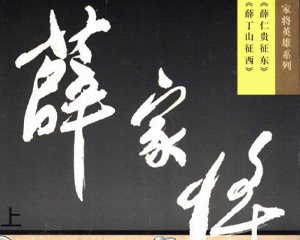 家将英雄系列
《薛仁贵征东》
《薛丁山征西》
薛家将
上